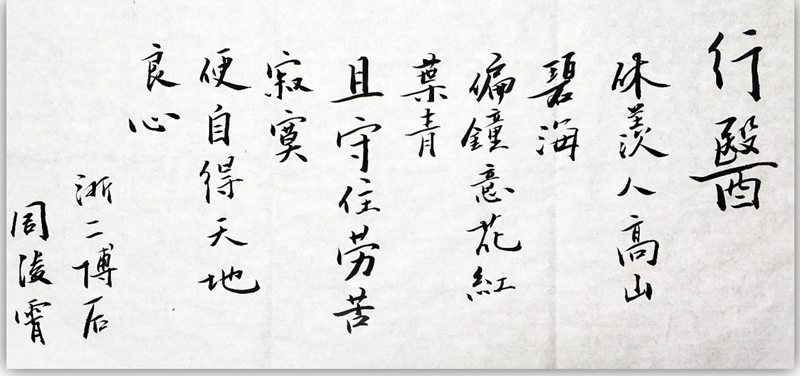 行醫
休羡人高山
碧海
偏鐘意花紅
葉青
且守住劳苦
寂寞
便自得天地
良心
浙二博后
周凌霄